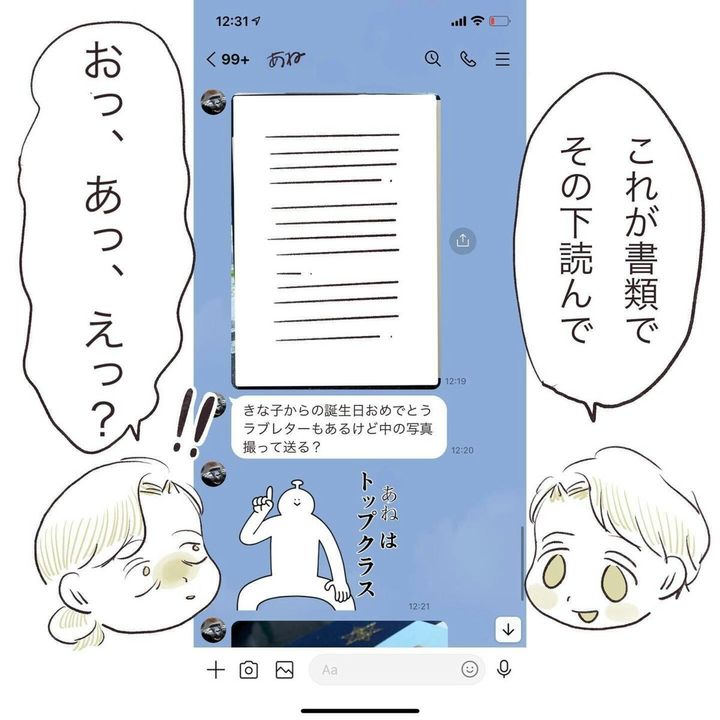 12:31
99+
あね
これが書類で
その下読んで
おっ、あっ、えっ?
12:19
きな子からの誕生日おめでとう
ラブレターもあるけど中の写真
撮って送る?
12:20
!!
あねは
トップクラス
12:21
Aa